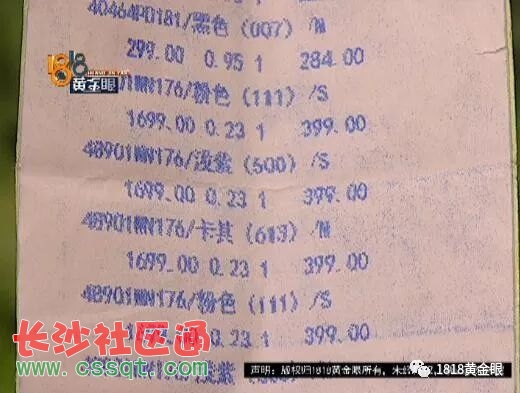 40464P0181/黑色(007) /M
299.00 0.95 1 284.00
1818
黄金眼
WN176/粉色(111) /S
1699.00 0.23 1 399.00
48901WN176/浅紫(500) /S
1699.00 0.23 1 399.00
48901WN176/卡其(613) /M
1699.00 0.23 1 399.00
48901WN176/粉色(111) /S
0.23 1 399.00
长沙社区通
www.cssqt.com
声明:版权归1818黄金眼所有,未经
1818黄金眼